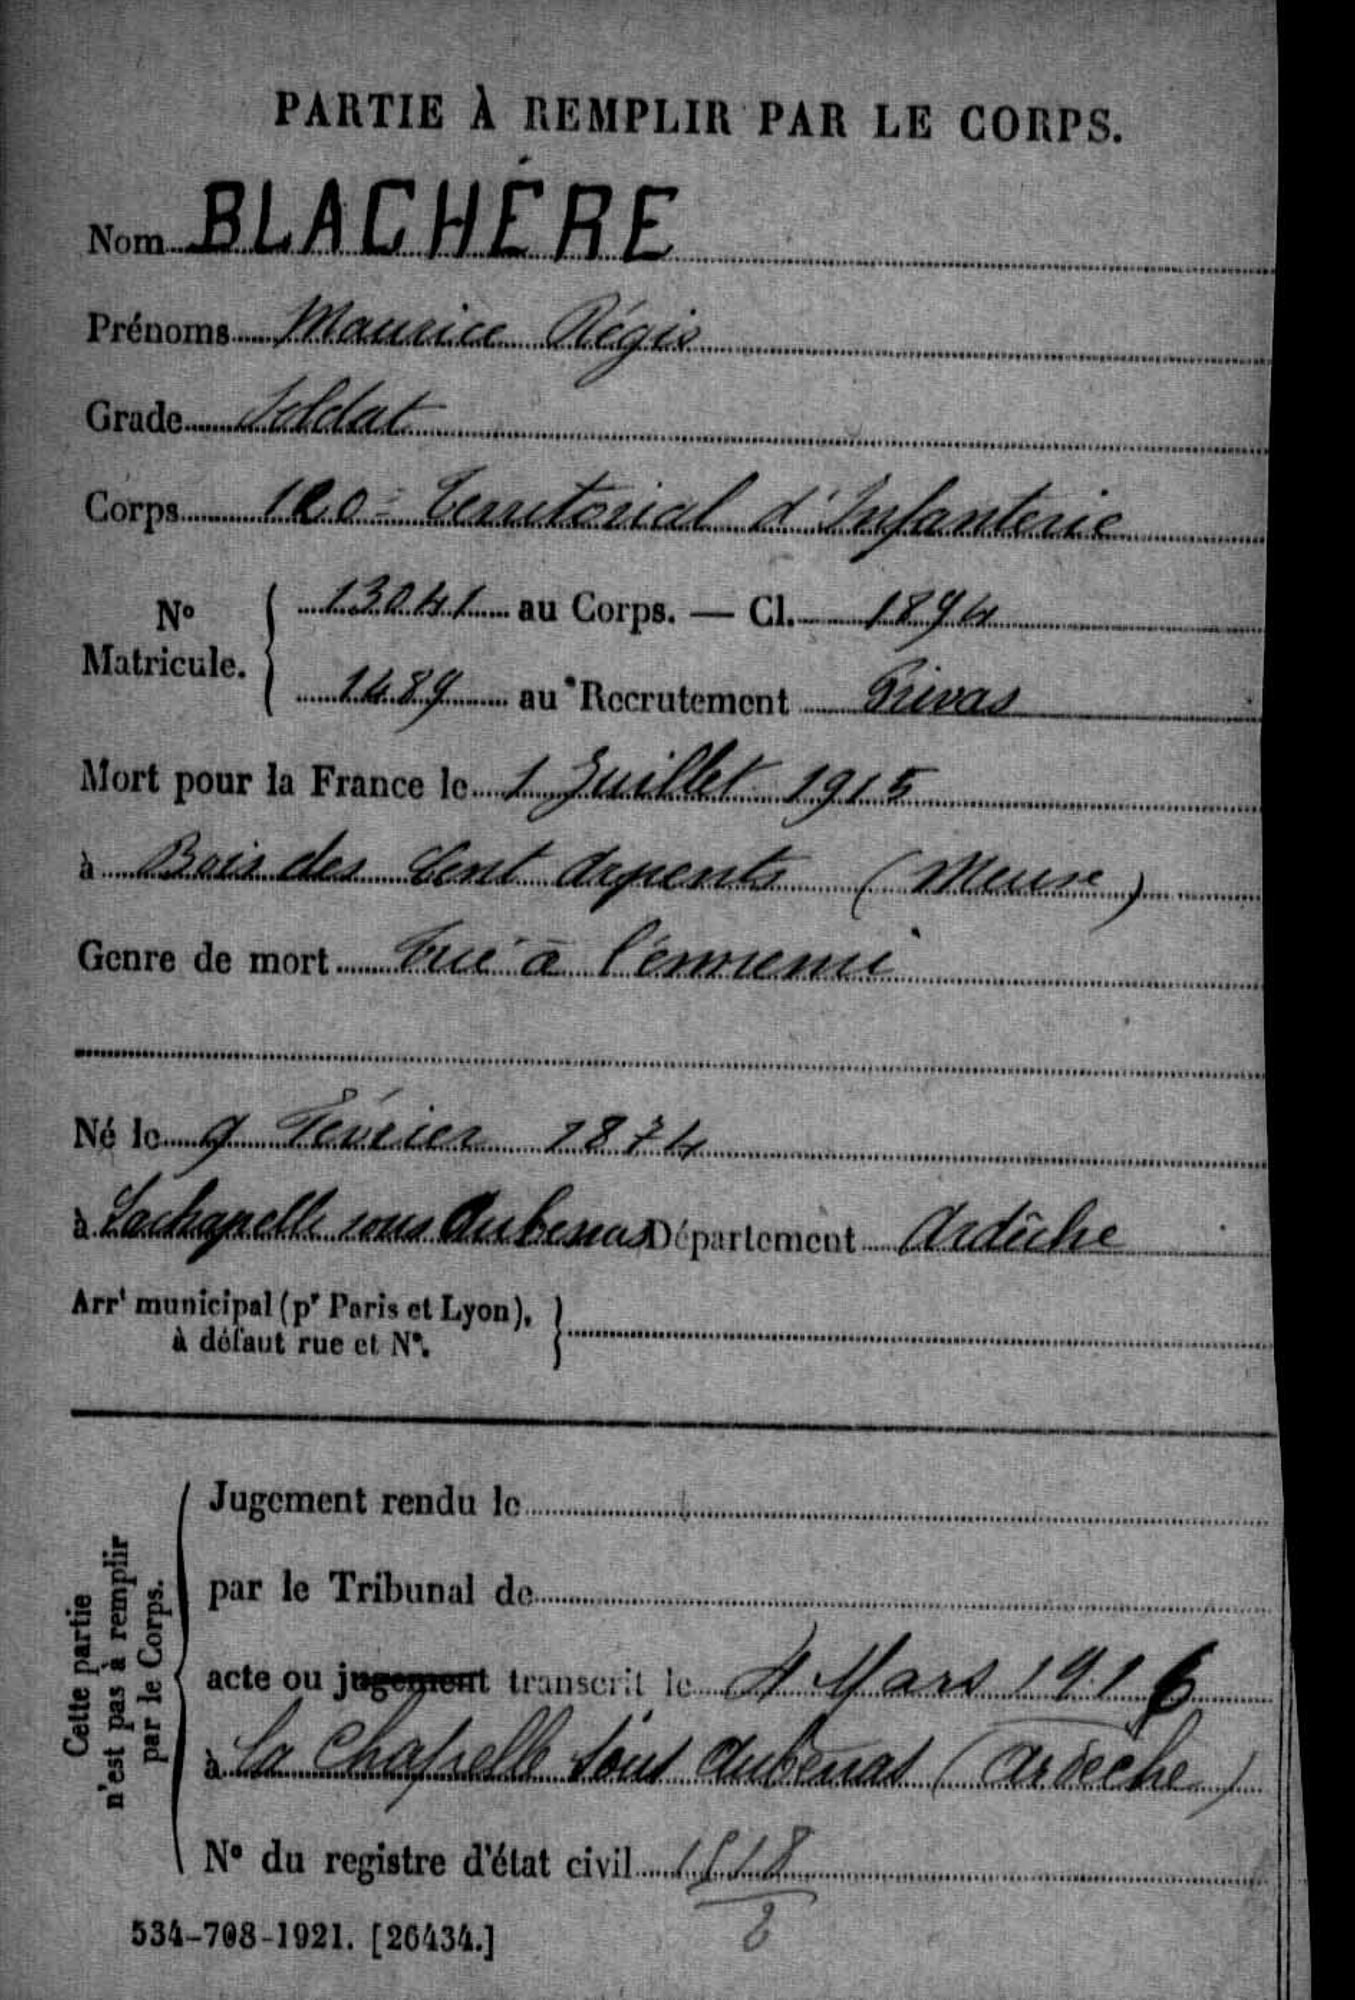 PARTIE À REMPLIR PAR LE CORPS.
Nom BLACHÈRE
Prénoms Maurice Régis
Grade Soldat
Corps 120e Territorial d'Infanterie
No Matricule. 13041 au Corps. — Cl. 1894
1489 au Recrutement Privas
Mort pour la France le 1 Juillet 1915
à Bois des Cent arpents (Meuse)
Genre de mort Tué à l'ennemi
Né le 9 Février 1874
à Lachapelle sous Aubenas Département Ardèche
Arrt municipal (pr Paris et Lyon),
à défaut rue et No.
Cette partie
n'est pas à remplir
par le Corps.
Jugement rendu le
par le Tribunal de
acte ou jugement transcrit le 4 Mars 1916
à La Chapelle sous Aubenas (Ardèche)
No du registre d'état civil
534-708-1921. [26434.]